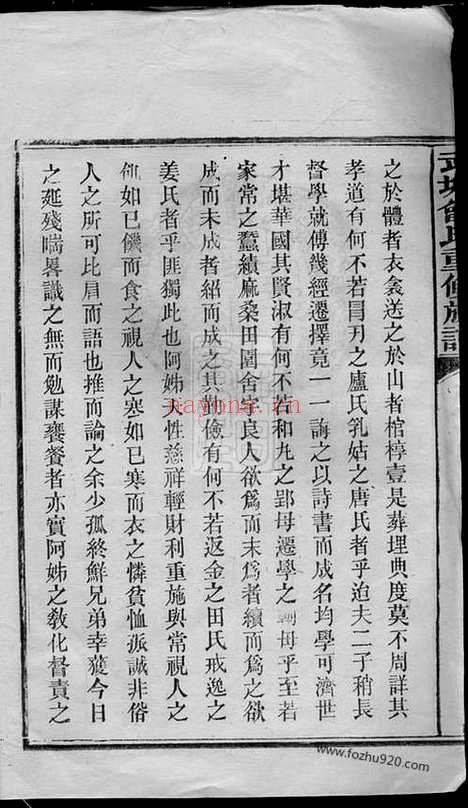 武城曾氏重修族譜
之於體者衣衾送之於山者棺槨壹是葬埋典度莫不周詳其
孝道有何不若冒刃之盧氏乳姑之唐氏者乎迨夫二子稍長
督學就傅幾經遷擇竟一一誨之以詩書而成名均學可濟世
才堪華國其賢淑有何不若和九之郢母遷學之母乎至若
家常之蠶績麻桑田園舍宇良人欲爲而未爲者續而爲之欲
成而未成者紹而成之其勤儉有何不若返金之田氏戒逸之
姜氏者乎匪獨此也阿姊天性慈祥輕財利重施與常視人之
飢如已饑而食之視人之寒如已寒而衣之憐貧恤孤誠非俗
人之所可比肩而語也推而論之余少孤終鮮兄弟幸獲今日
之延殘喘畧識之無而勉謀饔餐者亦實阿姊之敎化督責之
nayona.cn
www.fozhu920.com